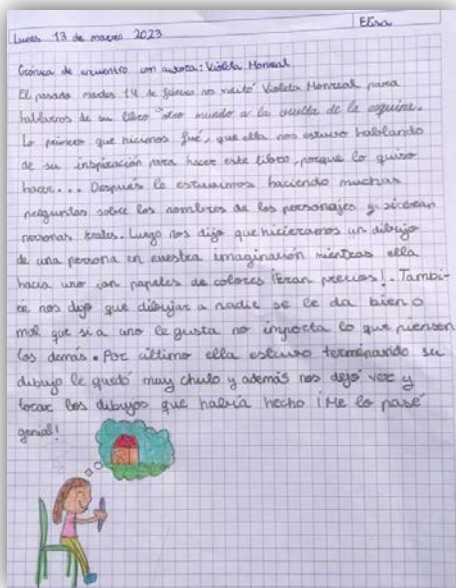 Elisa
Lunes 13 de marzo 2023
Crónica de encuentro con autora: Violeta Monreal
El pasado martes 14 de febrero nos visitó Violeta Monreal para
hablarnos de su libro "otro mundo a la vuelta de la esquina.
Lo primero que hicimos fué, que ella nos estuvo hablando
de su inspiración para hacer este libro, porque lo quiso
hacer... Después le estuvimos haciendo muchas
preguntas sobre los nombres de los personajes y si eran
personas reales. Luego nos dijo que hicieramos un dibujo
de una persona en nuestra imaginación mientras ella
hacia uno con papeles de colores ¡Eran precios!. Tambi-
én nos dijo que dibujar a nadie se le da bien o
mal que si a uno le gusta no importa lo que piensen
los demás. Por último ella estuvo terminando su
dibujo le quedó muy chulo y además nos dejó ver y
tocar los dibujos que había hecho ¡Me lo pasé
genial!